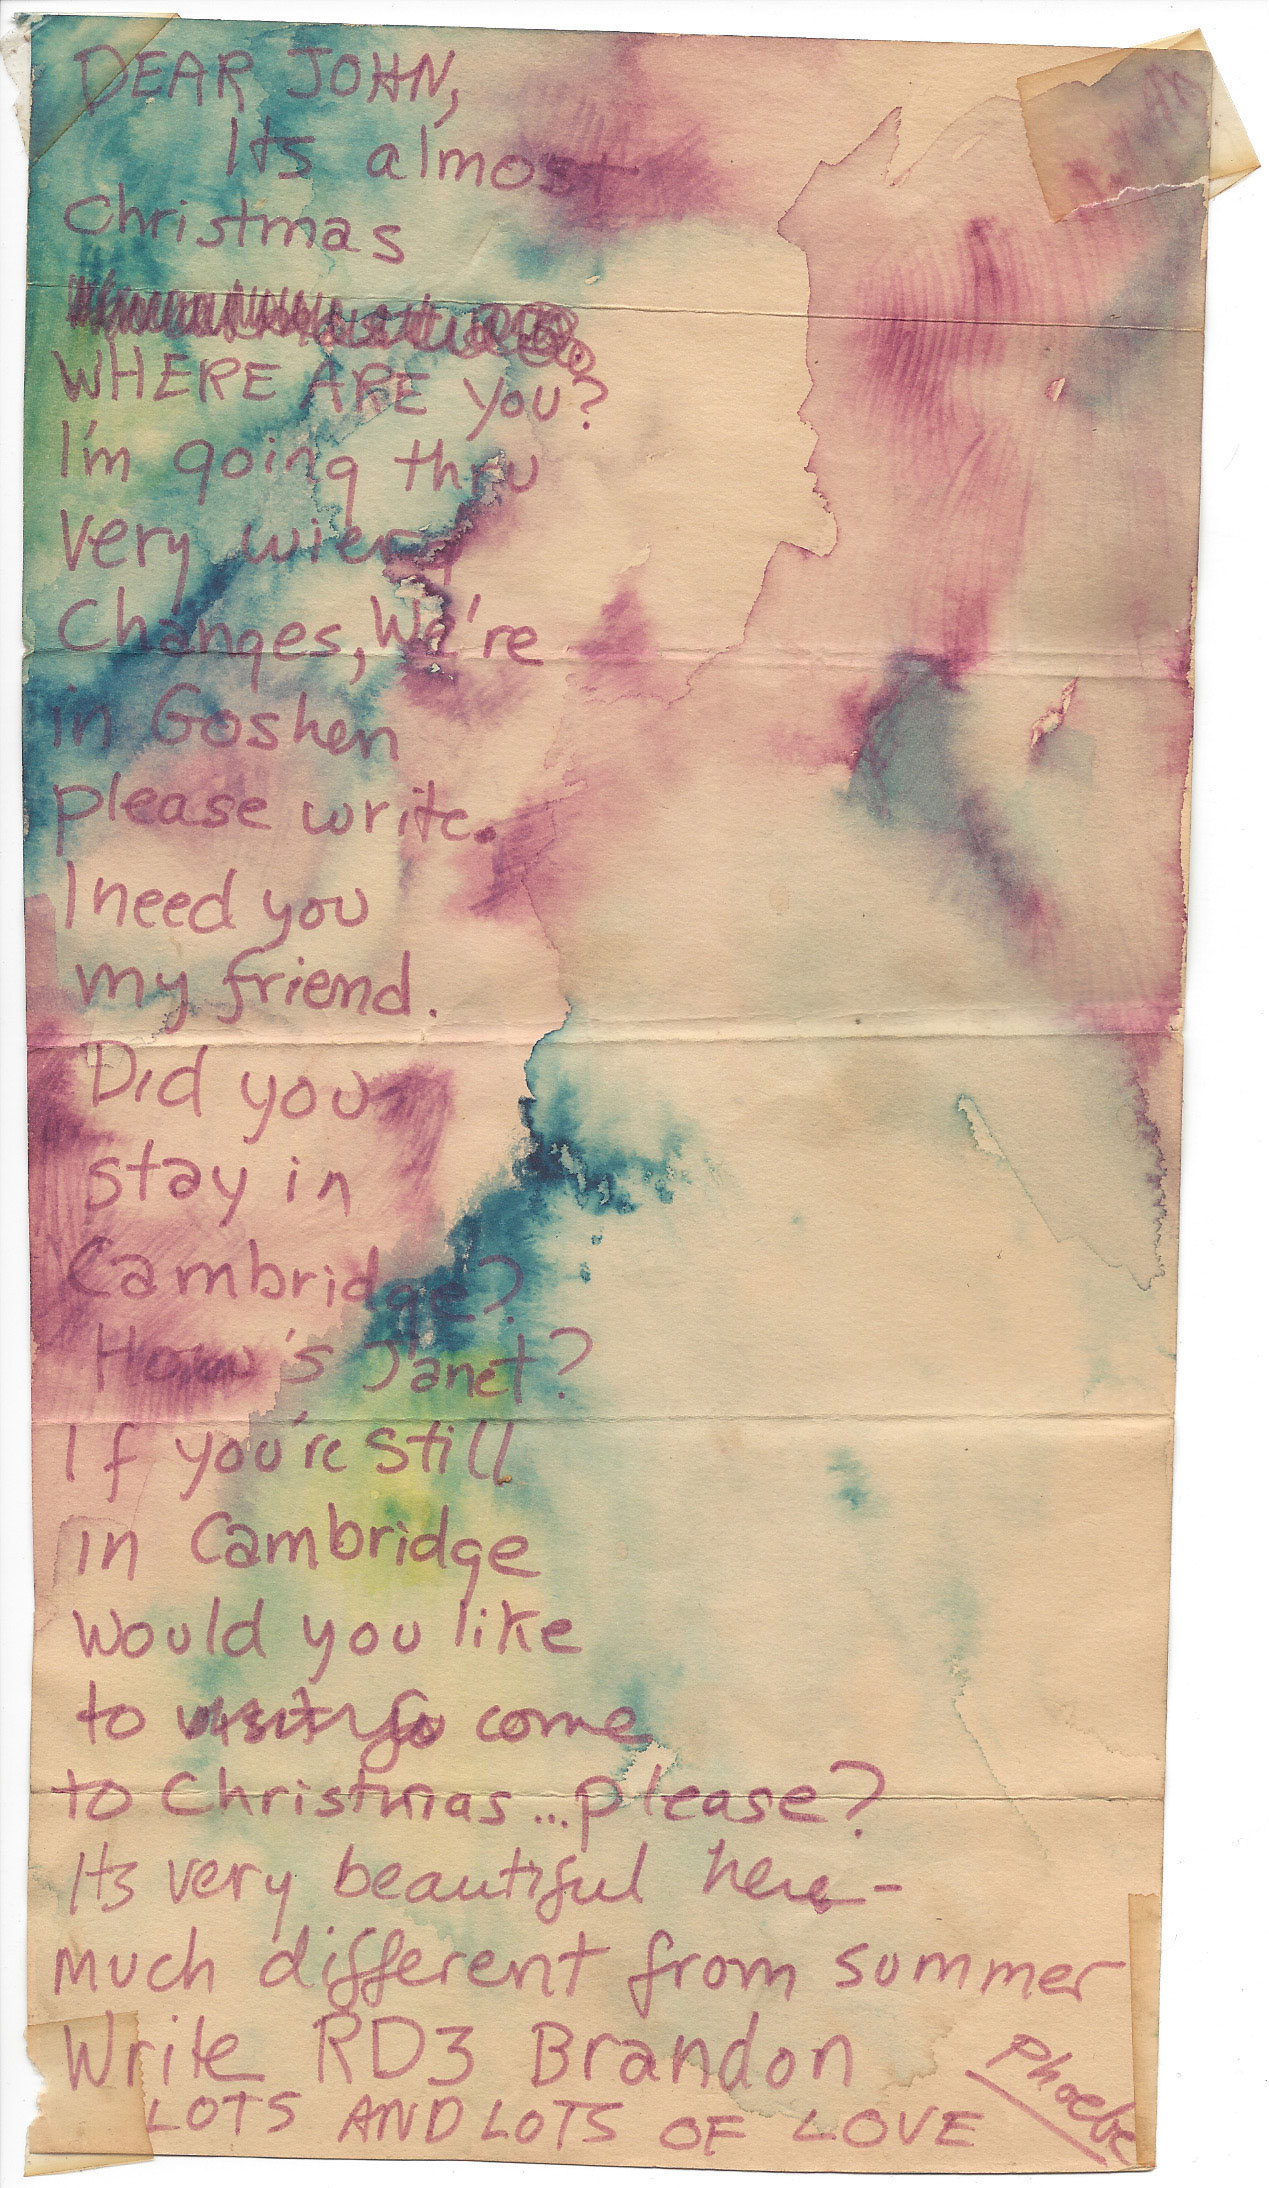 DEAR JOHN,
Its almost
Christmas
WHERE ARE YOU?
I'm going thru
very wierd
Changes, We're
in Goshen
please write.
I need you
my friend.
Did you
stay in
Cambridge?
How's Janet?
If you're still
in Cambridge
would you like
to visit come
to Christmas...please?
Its very beautiful here-
much different from summer
Write RD3 Brandon
LOTS AND LOTS OF LOVE
Phoebe